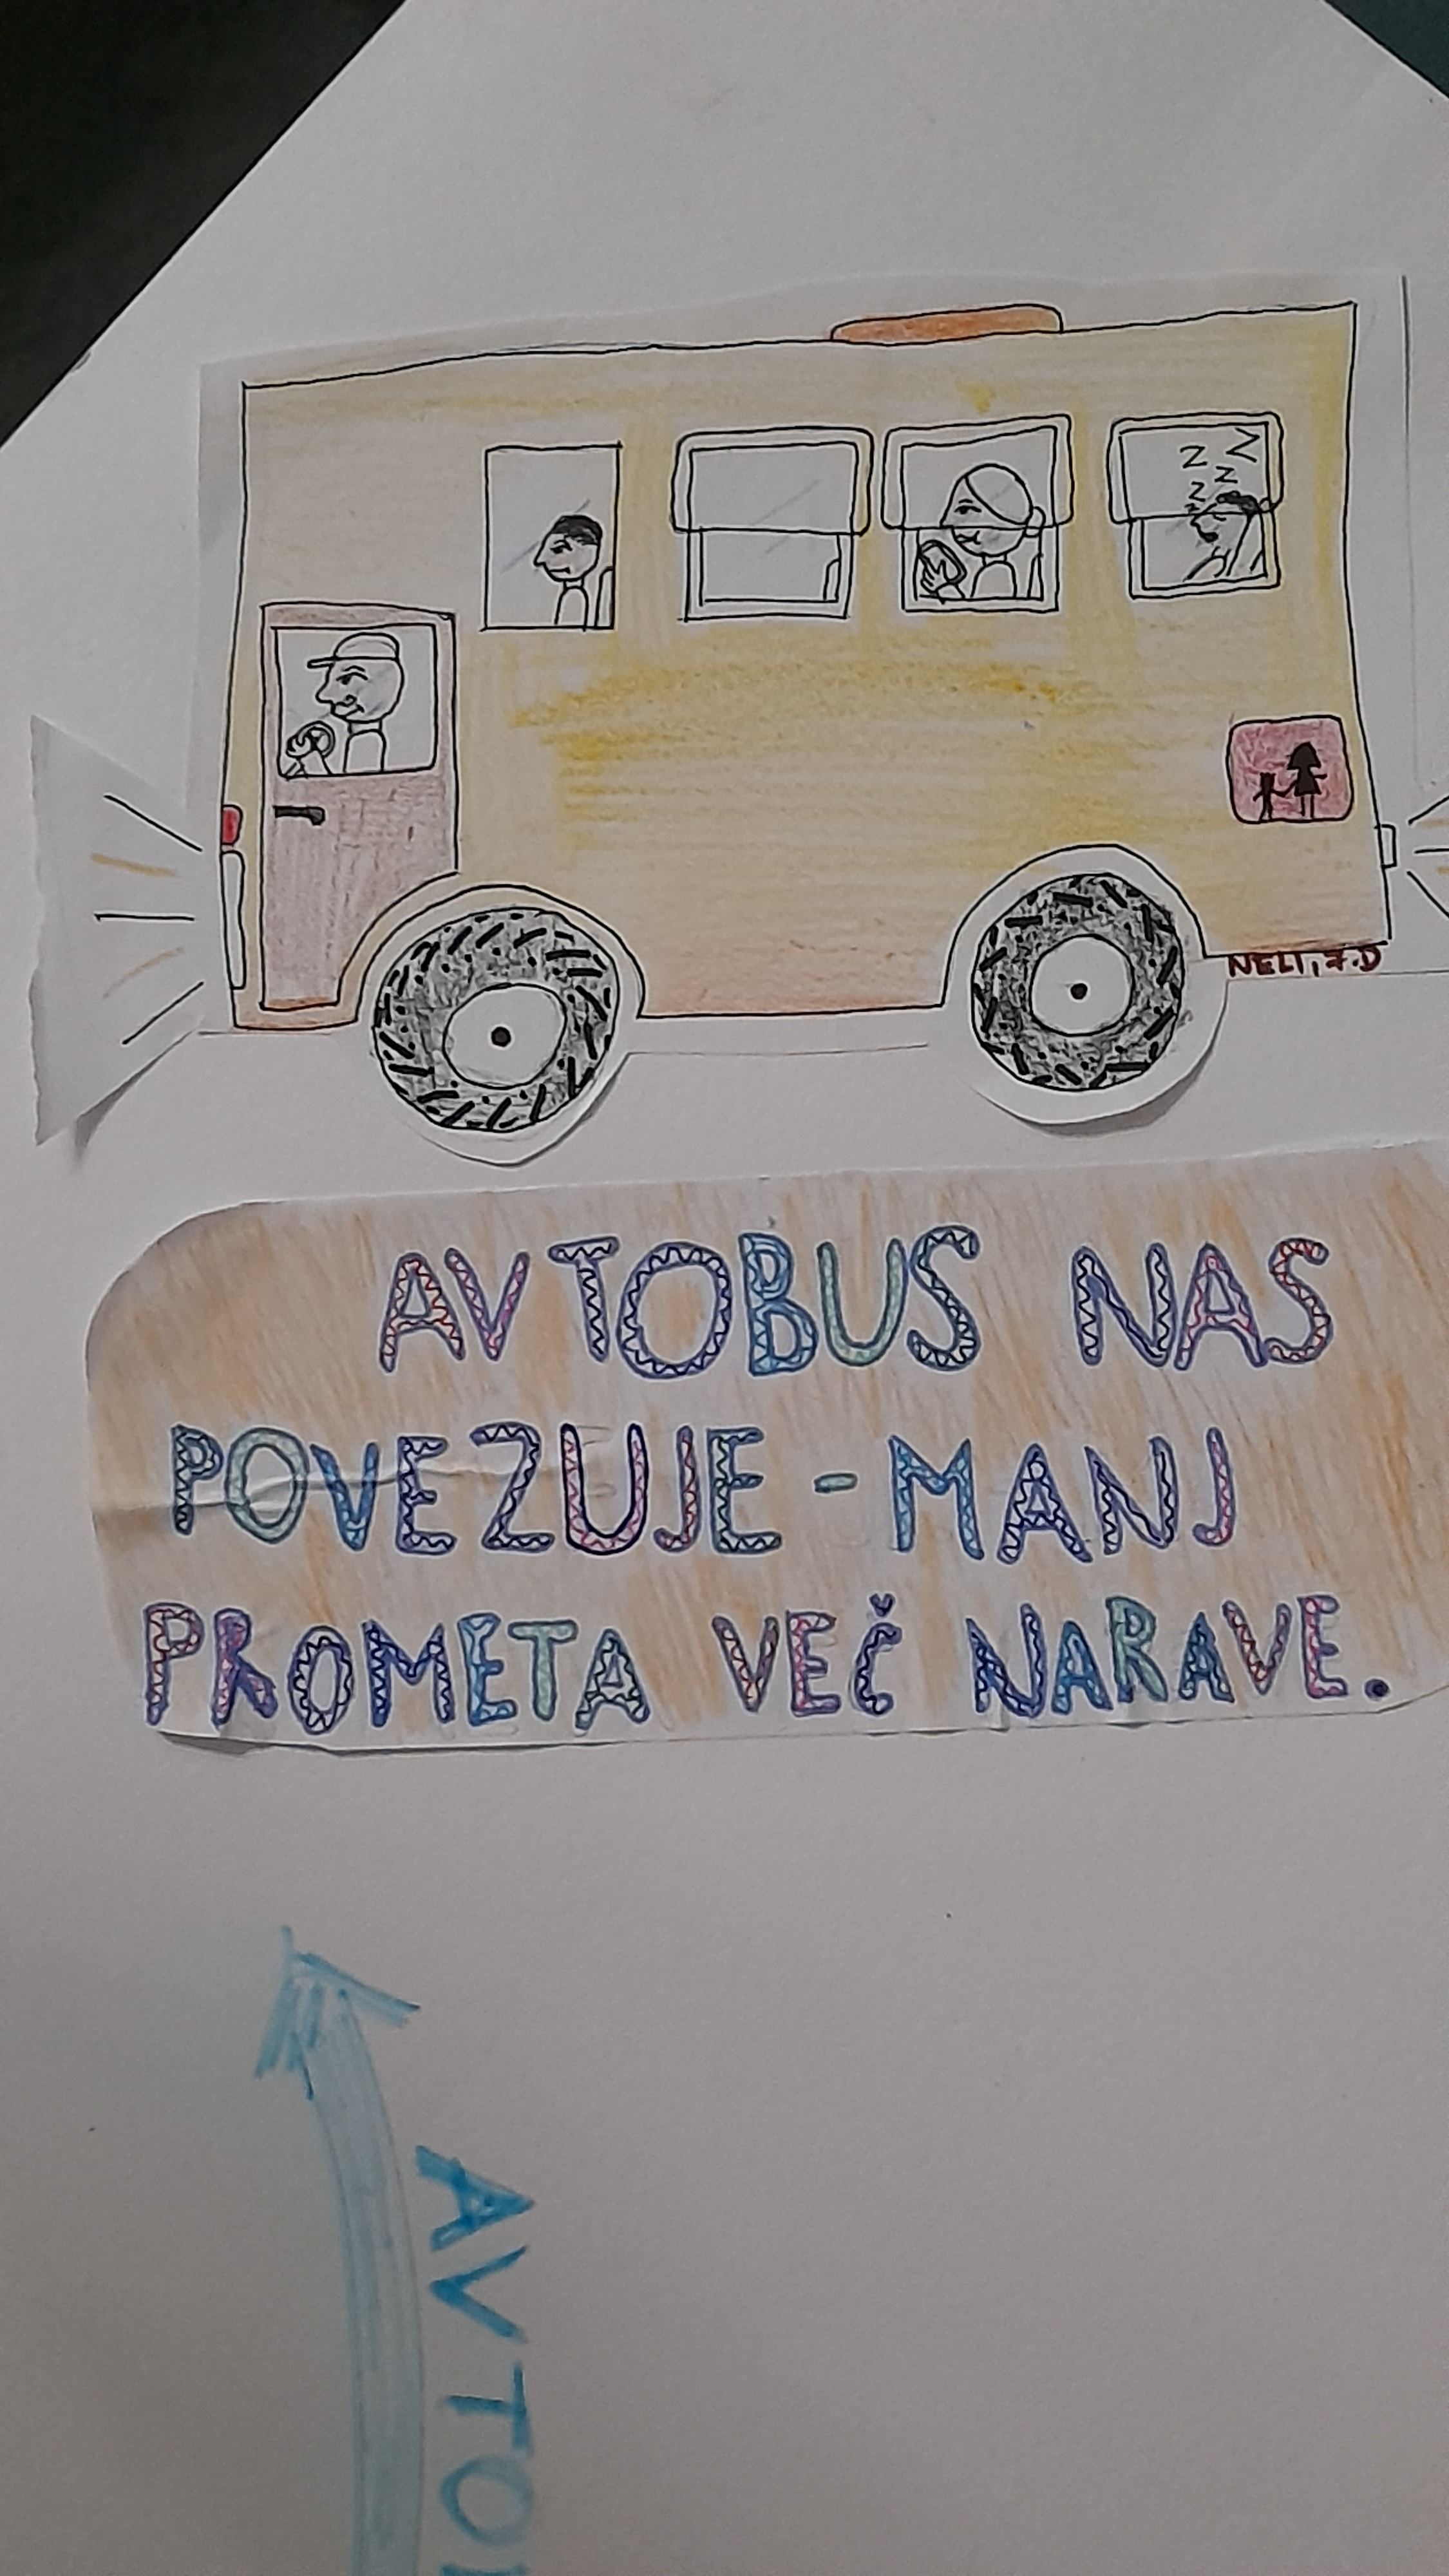 Z Z Z Z
NELI, 7.D
AVTOBUS NAS
POVEZUJE - MANJ
PROMETA VEČ NARAVE.
AVTO